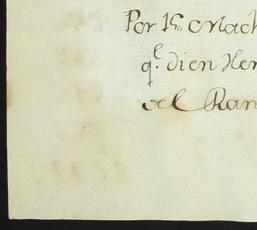 Por 15 Mach
q.e dien Her
al Ran